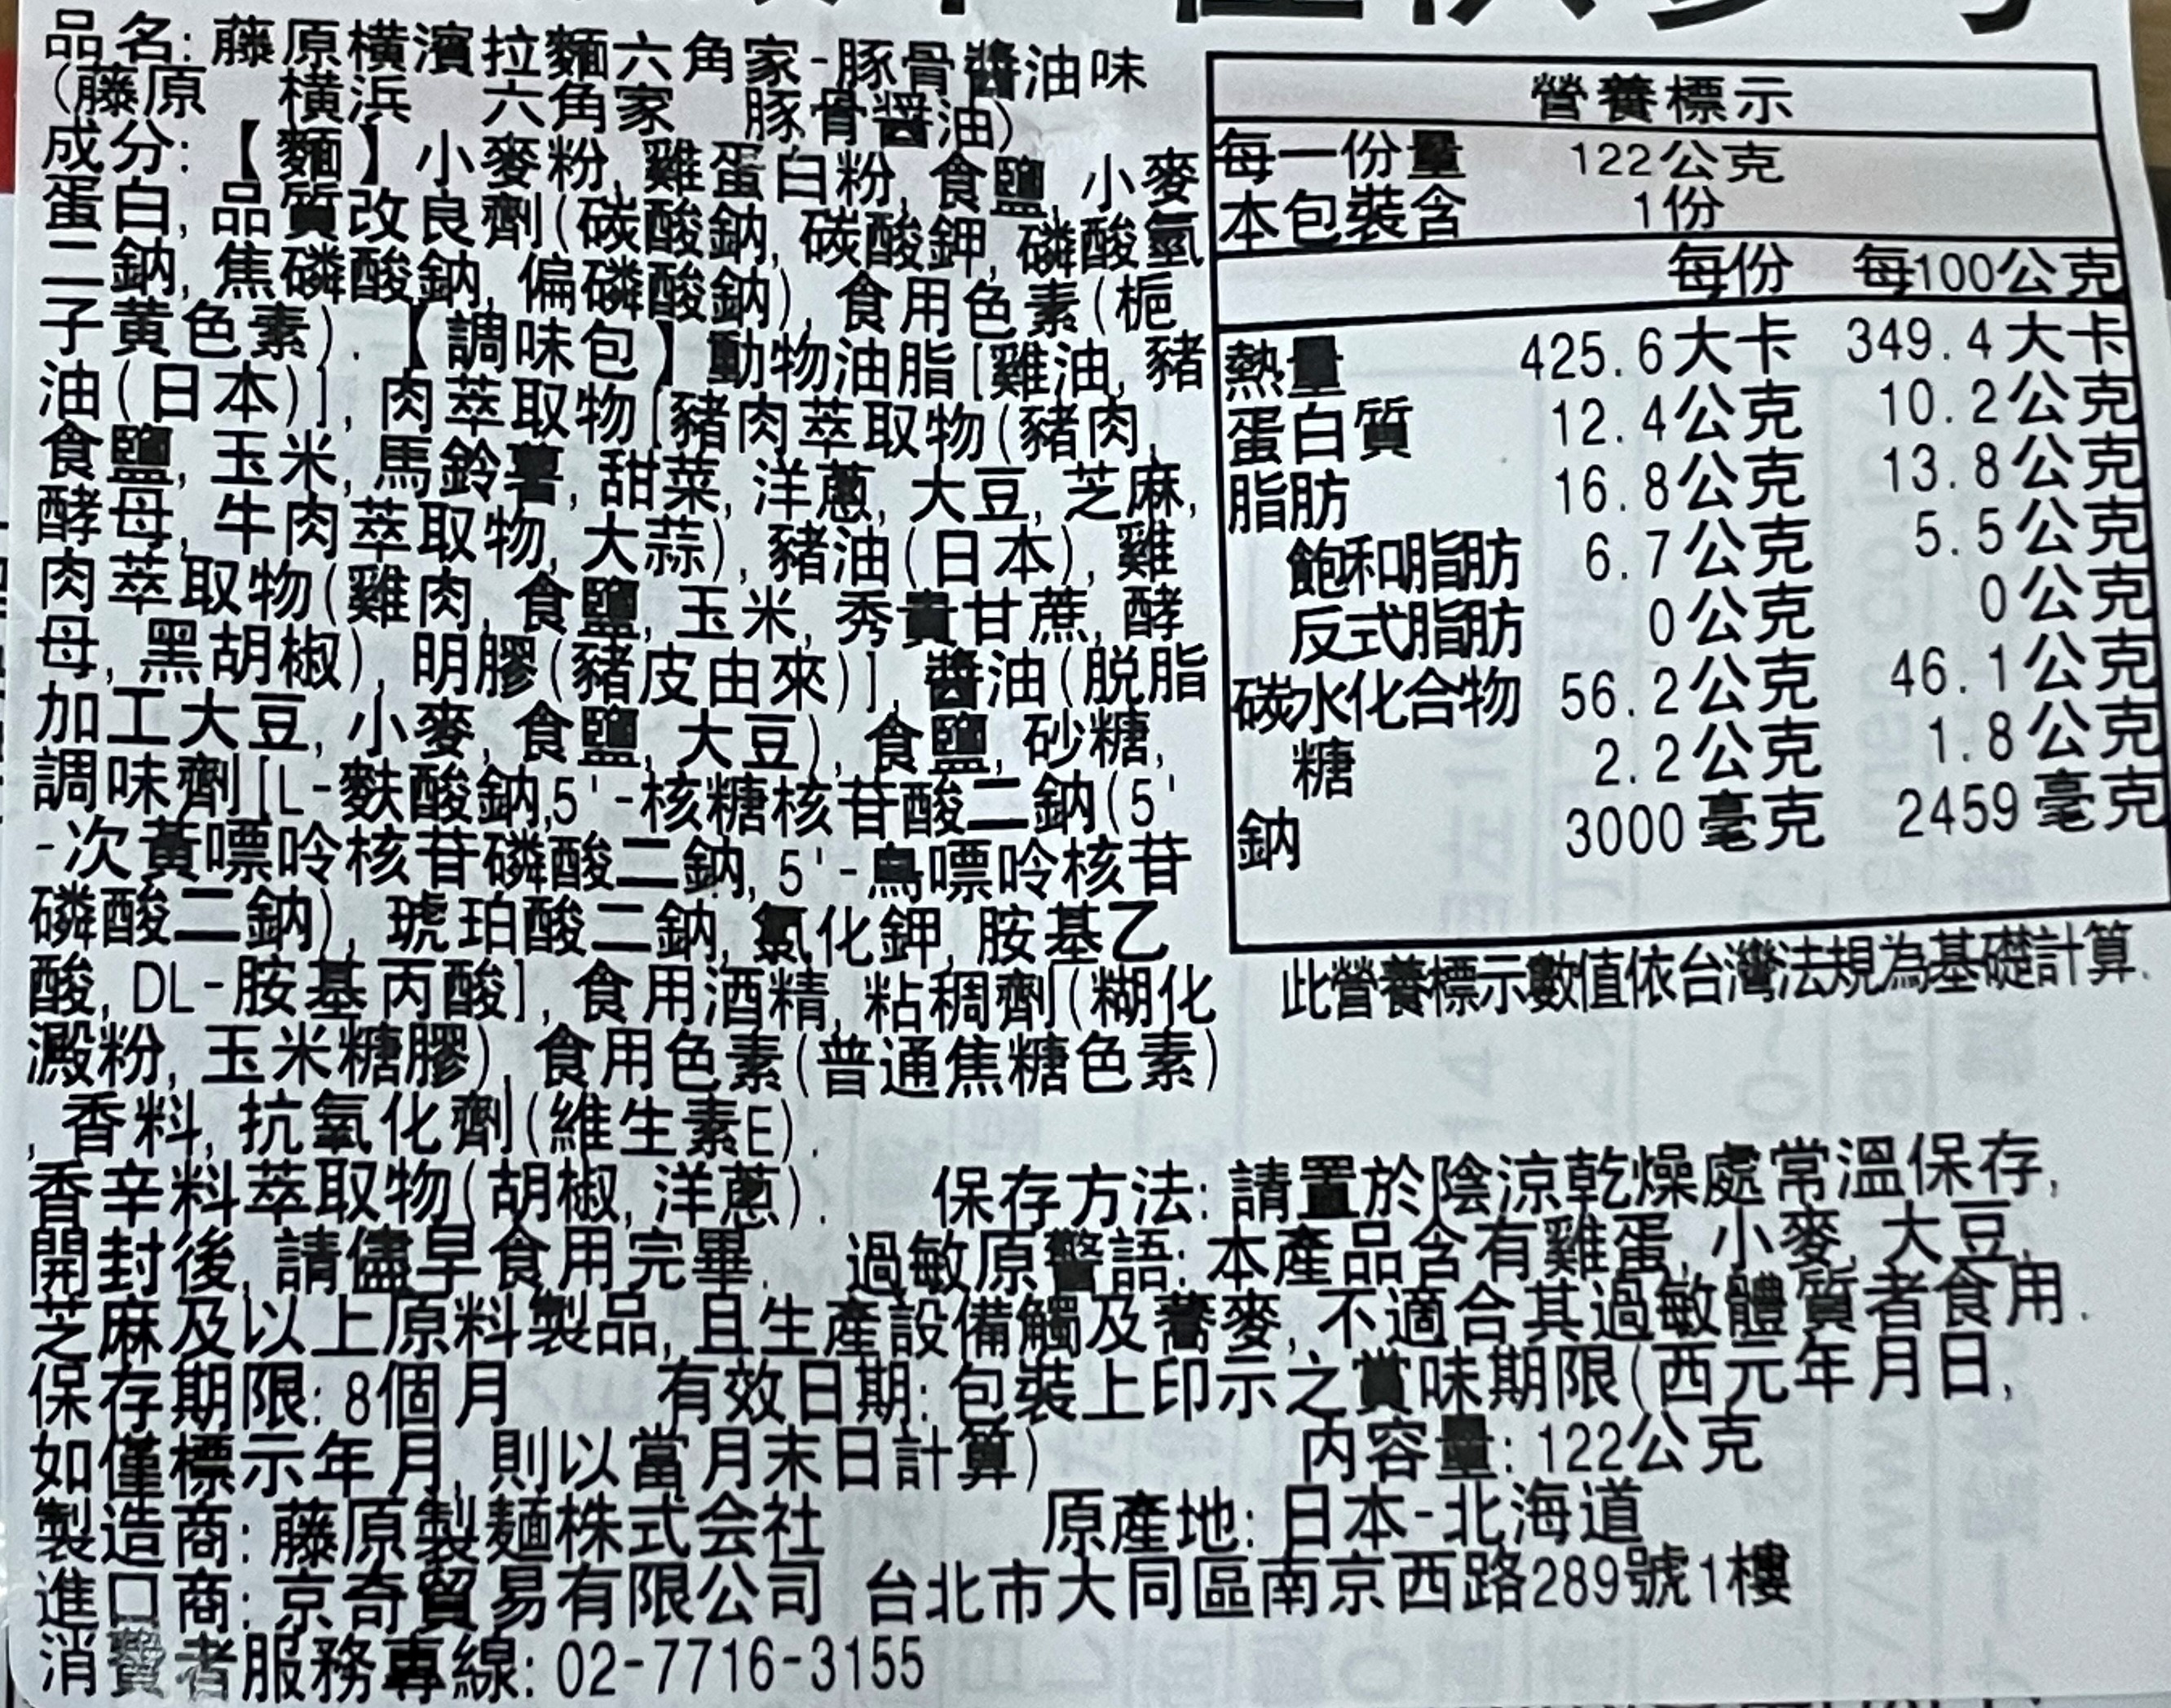 品名: 藤原横濱拉麵六角家-豚骨醬油味
(藤原 横浜 六角家 豚骨醤油)
成分: 【麵】小麥粉, 雞蛋白粉, 食鹽, 小麥
蛋白, 品質改良劑(碳酸鈉, 碳酸鉀, 磷酸氫
二鈉, 焦磷酸鈉, 偏磷酸鈉), 食用色素(梔
子黃色素). 【調味包】動物油脂[雞油, 豬
油(日本)], 肉萃取物[豬肉萃取物(豬肉,
食鹽, 玉米, 馬鈴薯, 甜菜, 洋蔥, 大豆, 芝麻,
酵母, 牛肉萃取物, 大蒜), 豬油(日本), 雞
肉萃取物(雞肉, 食鹽, 玉米, 秀貴甘蔗, 酵
母, 黑胡椒), 明膠(豬皮由來)], 醬油(脱脂
加工大豆, 小麥, 食鹽, 大豆), 食鹽, 砂糖,
調味劑[L-麩酸鈉,5'-核糖核苷酸二鈉(5'
-次黃嘌呤核苷磷酸二鈉, 5'-鳥嘌呤核苷
磷酸二鈉), 琥珀酸二鈉, 氯化鉀, 胺基乙
酸, DL-胺基丙酸], 食用酒精, 粘稠劑(糊化
澱粉, 玉米糖膠), 食用色素(普通焦糖色素)
, 香料, 抗氧化劑(維生素E).
香辛料萃取物(胡椒, 洋蔥). 保存方法: 請置於陰涼乾燥處常溫保存,
開封後, 請儘早食用完畢. 過敏原警語: 本產品含有雞蛋, 小麥, 大豆,
芝麻及以上原料製品, 且生產設備觸及蕎麥, 不適合其過敏體質者食用.
保存期限: 8個月 有效日期: 包裝上印示之賞味期限(西元年月日,
如僅標示年月, 則以當月末日計算) 內容量: 122公克
製造商: 藤原製麺株式会社 原產地: 日本-北海道
進口商: 京奇貿易有限公司 台北市大同區南京西路289號1樓
消費者服務專線: 02-7716-3155
營養標示
每一份量 122公克
本包裝含 1份
每份 每100公克
熱量 425.6大卡 349.4大卡
蛋白質 12.4公克 10.2公克
脂肪 16.8公克 13.8公克
飽和脂肪 6.7公克 5.5公克
反式脂肪 0公克 0公克
碳水化合物 56.2公克 46.1公克
糖 2.2公克 1.8公克
鈉 3000毫克 2459毫克
此營養標示數值依台灣法規為基礎計算.